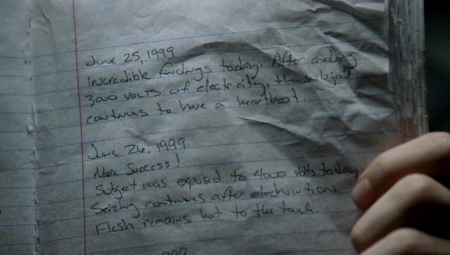 June 25, 1999
Incredible findings today. After enduring
3,000 volts of electricity, the subject
continues to have a heartbeat.
June 26, 1999
More Success!
Subject was exposed to 4000 volts today
Seizing continues after electrocution
Flesh remains hot to the touch
1999